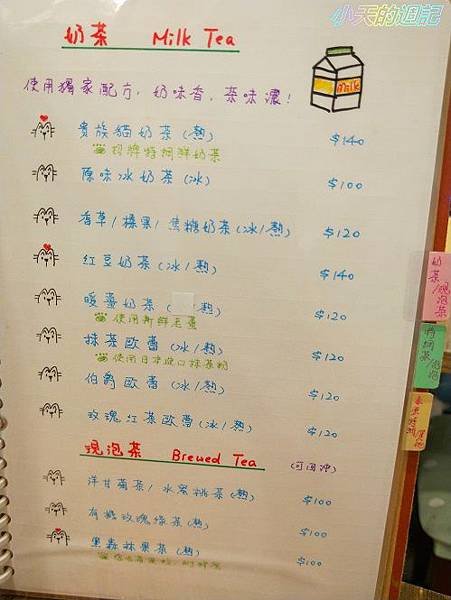 小天的週記
奶茶 Milk Tea
Milk
使用獨家配方,奶味香,茶味濃!
貴族貓奶茶(熱) $140
招牌特調鮮奶茶
原味冰奶茶(冰) $100
香草/榛果/焦糖奶茶(冰/熱) $120
紅豆奶茶(冰/熱) $140
暖薑奶茶( 熱) $120
使用新鮮老薑
抹茶歐蕾(冰/熱) $120
使用日本進口抹茶粉
伯爵歐蕾(冰/熱) $120
玫瑰紅茶歐蕾(冰/熱) $120
現泡茶 Brewed Tea (可回沖)
洋甘菊茶/水蜜桃茶(熱) $100
有機玫瑰綠茶(熱) $100
黑森林果茶(熱) $100
奶茶/現泡茶